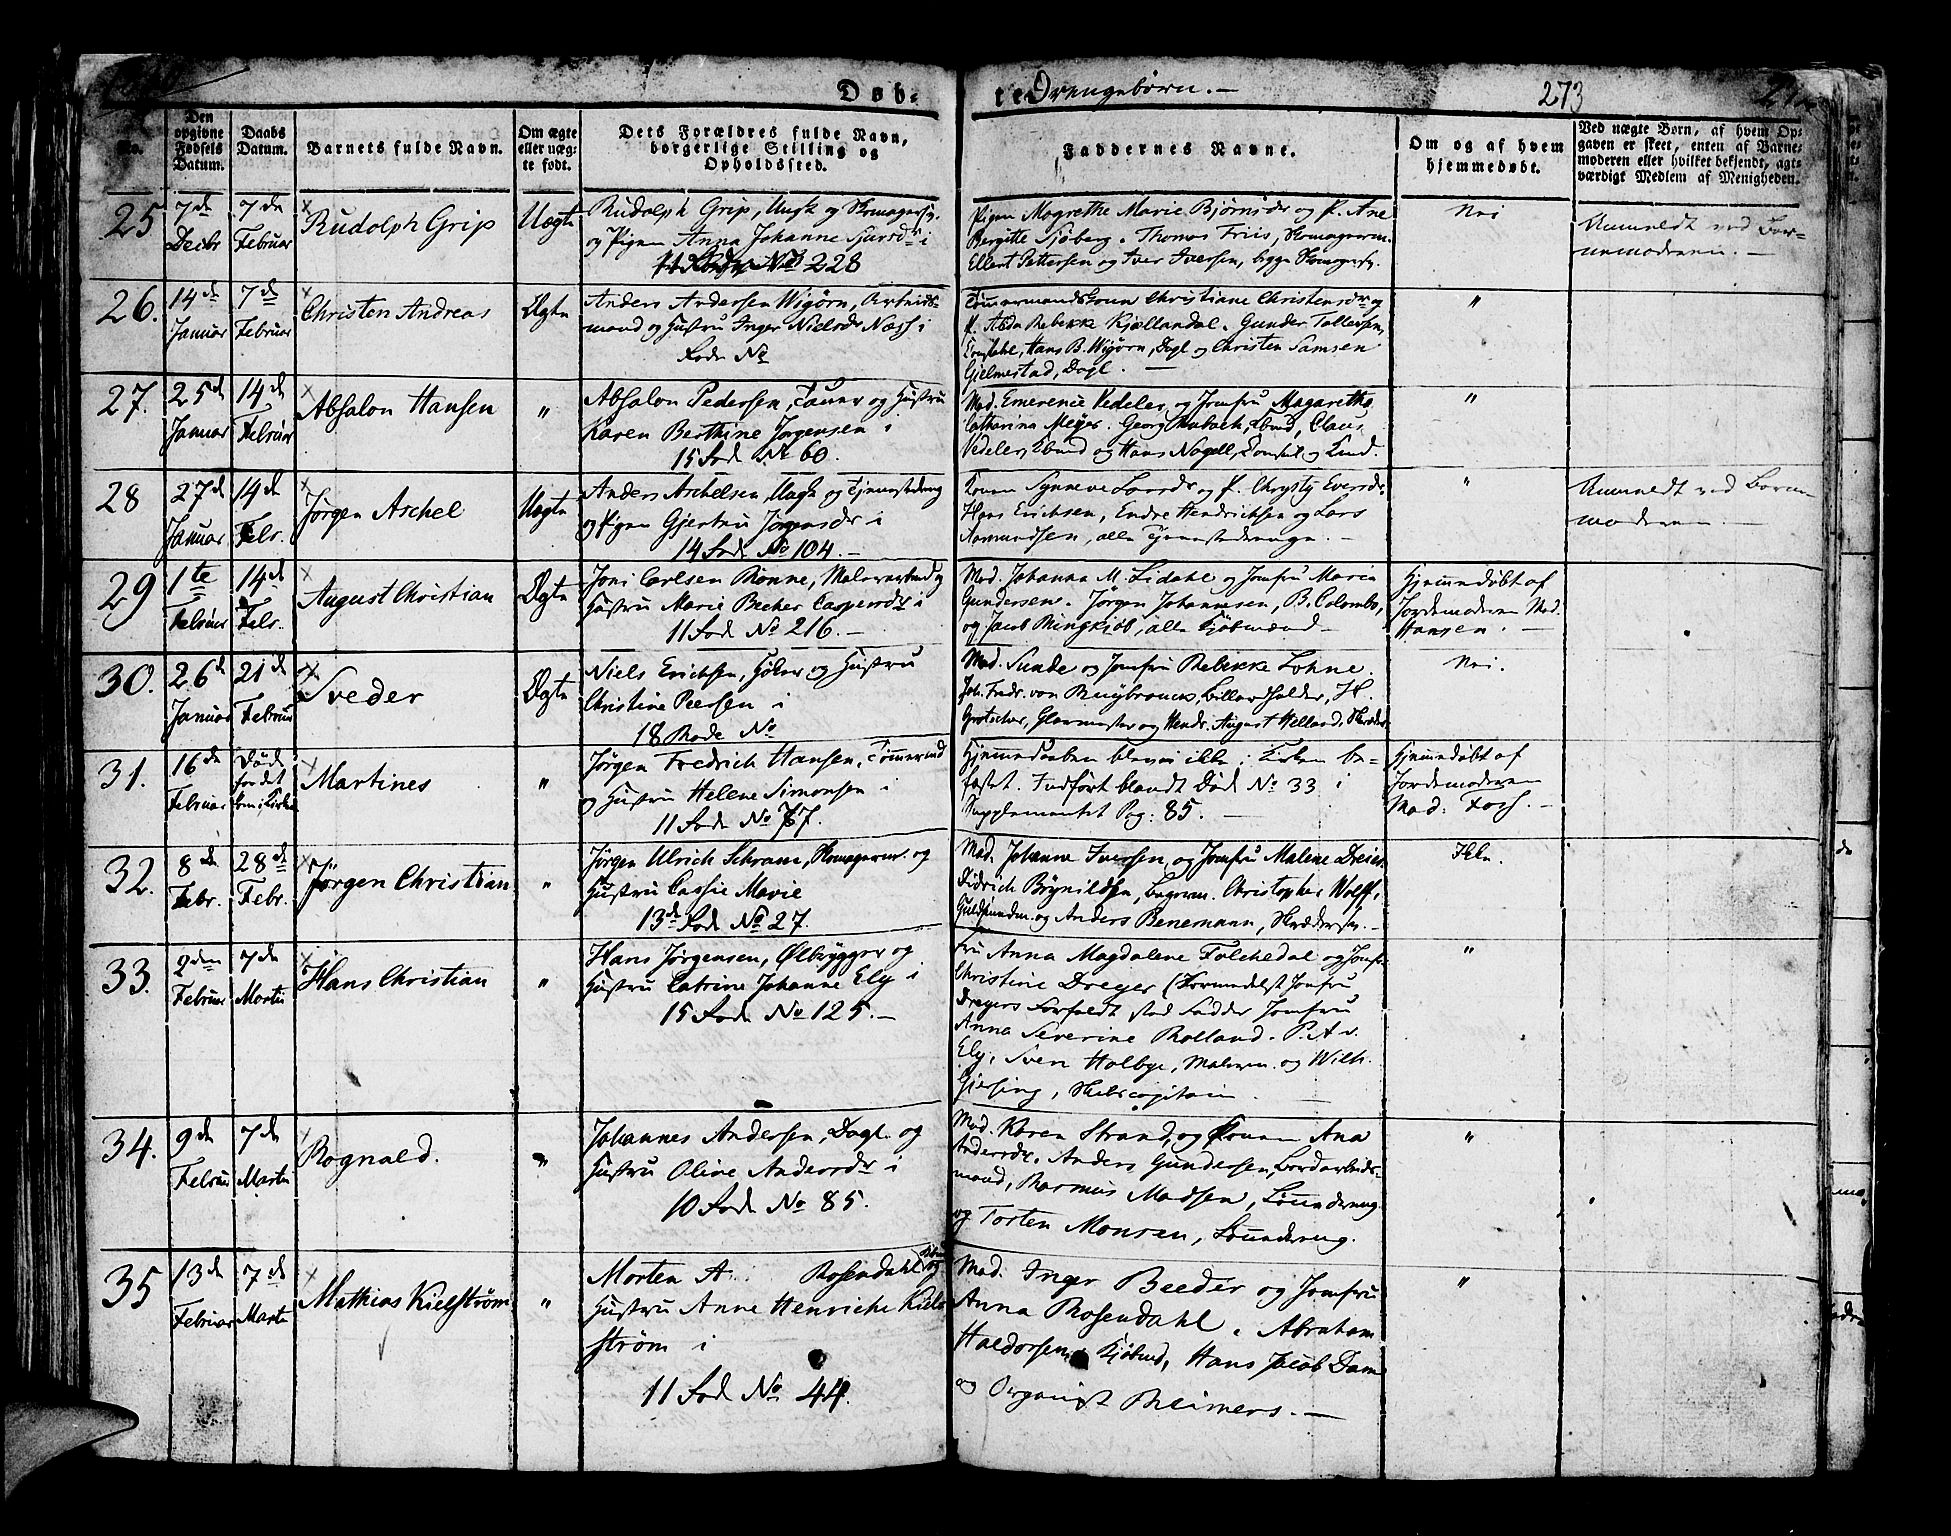 Døb- te Drengebørn. 273
No.
Den opgivne Fødsels Datum.
Daabs Datum.
Barnets fulde Navn.
Om ægte eller uægte født.
Dets Forældres fulde Navn, borgerlige Stilling og Opholdssted.
Faddernes Navne.
Om og af hvem hjemmedøbt.
Ved uægte Børn, af hvem Opgaven er skeet, enten af Barnemoderen eller hvilket bekjendt, agtværdigt Medlem af Menigheden.
25 7de Decbr 7de Februar Rudolph Grip Uægte
Rudolph Grip, Ungk. og Skomagersv.
og Pigen Anna Johanne Sjursdr i
No 228
Pigen Magrethe Marie Bjørnsdr og P. Ane
Bergitte Sjøberg. Thomas Friis, Skomagerm.
Ellert Pettersen og Iver Iversen, begge Skomagersv.
Nei
Anmeldt ved Barnemoderen. —
26. 14de Januar 7de Februar Christen Andreas Ægte
Anders Andersen Wigørn, Arbeidsmand og Hustru Inger Nielsdr Næss i
Rode No
Tømmermandskone Christiane Christensdr og
P. Alida Rebekke Kjellandal. Gunder Tollefsen,
Hans B. Wigørn, Dagl. og Christen Samsen
Gjelmestad, Dagl. —
"
27. 25de Januar 14de Februar Absalon Hansen "
Absalon Pedersen, og Hustru
Karen Berthine Jørgensen i
15 Rode No 60.
Mad. Emerence Vedeler og Jomfru Magarethe
Catharina Meyer. Georg Claus
Vedeler, og Hans Nagell, Consul og Kmd.
"
28 27de Januar 14de Febr. Jørgen Aschel Uægte
Anders Aschelsen, Ungk. og Tjenestedreng
og Pigen Gjertru Jørgensdr i
14 Rode No 104. —
Konen Synneve Larsdr og P. Chrysty Eversdr.
Hans Erichsen, Endre Hendrichsen og Lars
Aamundsen, alle Tjenestedrenge. —
"
Anmeldt ved Barnemoderen. —
29 1te Februar 14de Febr. August Christian Ægte
Joni Carlsen Rønne, Malersvend og
Hustru Marie Becher Caspersdr i
11 Rode No 216. —
Mad. Johanna M. Lidahl og Jomfru Maria
Gundersen. Jørgen Johannesen, B. Colombo,
og Jacob Ringkiøb, alle Kjøbmænd —
Hjemmedøbt af
Jordemoderen Mad.
Hansen. —
30. 26de Januar 21de Februar Sveder Ægte
Niels Erichsen, og Hustru
Christine Peersen i
18 Rode No
Mad. Sunde og Jomfru Rebekke Lohne.
Joh. Fredr. von Ruybrouck, Billardholder, H.
Grotscher, Glarmester og Hendr. August Helland, Skrædder
Nei.
31. 16de Februar Død før det kom i Kirke Martines "
Jørgen Fredrich Hansen, Tømmermd
og Hustru Helene Simonsen i
11 Rode No 77.
Hjemmedaaben blev ikke i Kirken befæstet. Indført blandt Døde No 33 i
Supplementet Pag: 85. —
Hjemmedøbt af
Jordemoderen
Mad: Foss. —
32. 8de Febr. 28de Febr. Jørgen Christian "
Jørgen Ulrich Schram, Skomagerm. og
Hustru Cassie Marie
13de Rode No 27.
Mad. Johanne Iversen, og Jomfru Malene Dreier
Didrich Brynildsen, Bagerm. Christopher Wolff,
Guldsmedm. og Anders Benemann, Skræddersv. —
Ikke.
33. 2den Februar 7de Martii Hans Christian "
Hans Jørgensen, Ølbrygger og
Hustru Catrine Johanne Ely i
15 Rode No 125. —
Fru Anna Magdalene Folchedal og Jomfr.
Christine Dreyer (Formedelst Jomfru
Dreyers Forfald stod Fadder Jomfru
Anna Severine Rolland. P. A. v.
Ely, Sven Holbye, Malerm. og Wilh.
Giersing, Skibscapitain. —
"
34. 9de Februar 7de Martii Rognald. "
Johannes Andersen, Dagl. og
Hustru Oline Andersdr i
10 Rode No 85.
Mad. Karen Strand, og Konen Ana
Andersdr. Anders Gundersen, Bordarbeidsmand, Rasmus Madsen,
og Torsten Monsen,
"
35 13de Februar 7de Martii Mathias Kielstrøm "
Morten A. Rosendahl, og
Hustru Anne Henriche Kielstrøm i
11 Rode No 44.
Mad. Inger Beeder og Jomfru
Anna Rosendahl. Abraham
Haldorsen, Kjøbmd, Hans Jacob Dam
og Organist Reimers. —
"